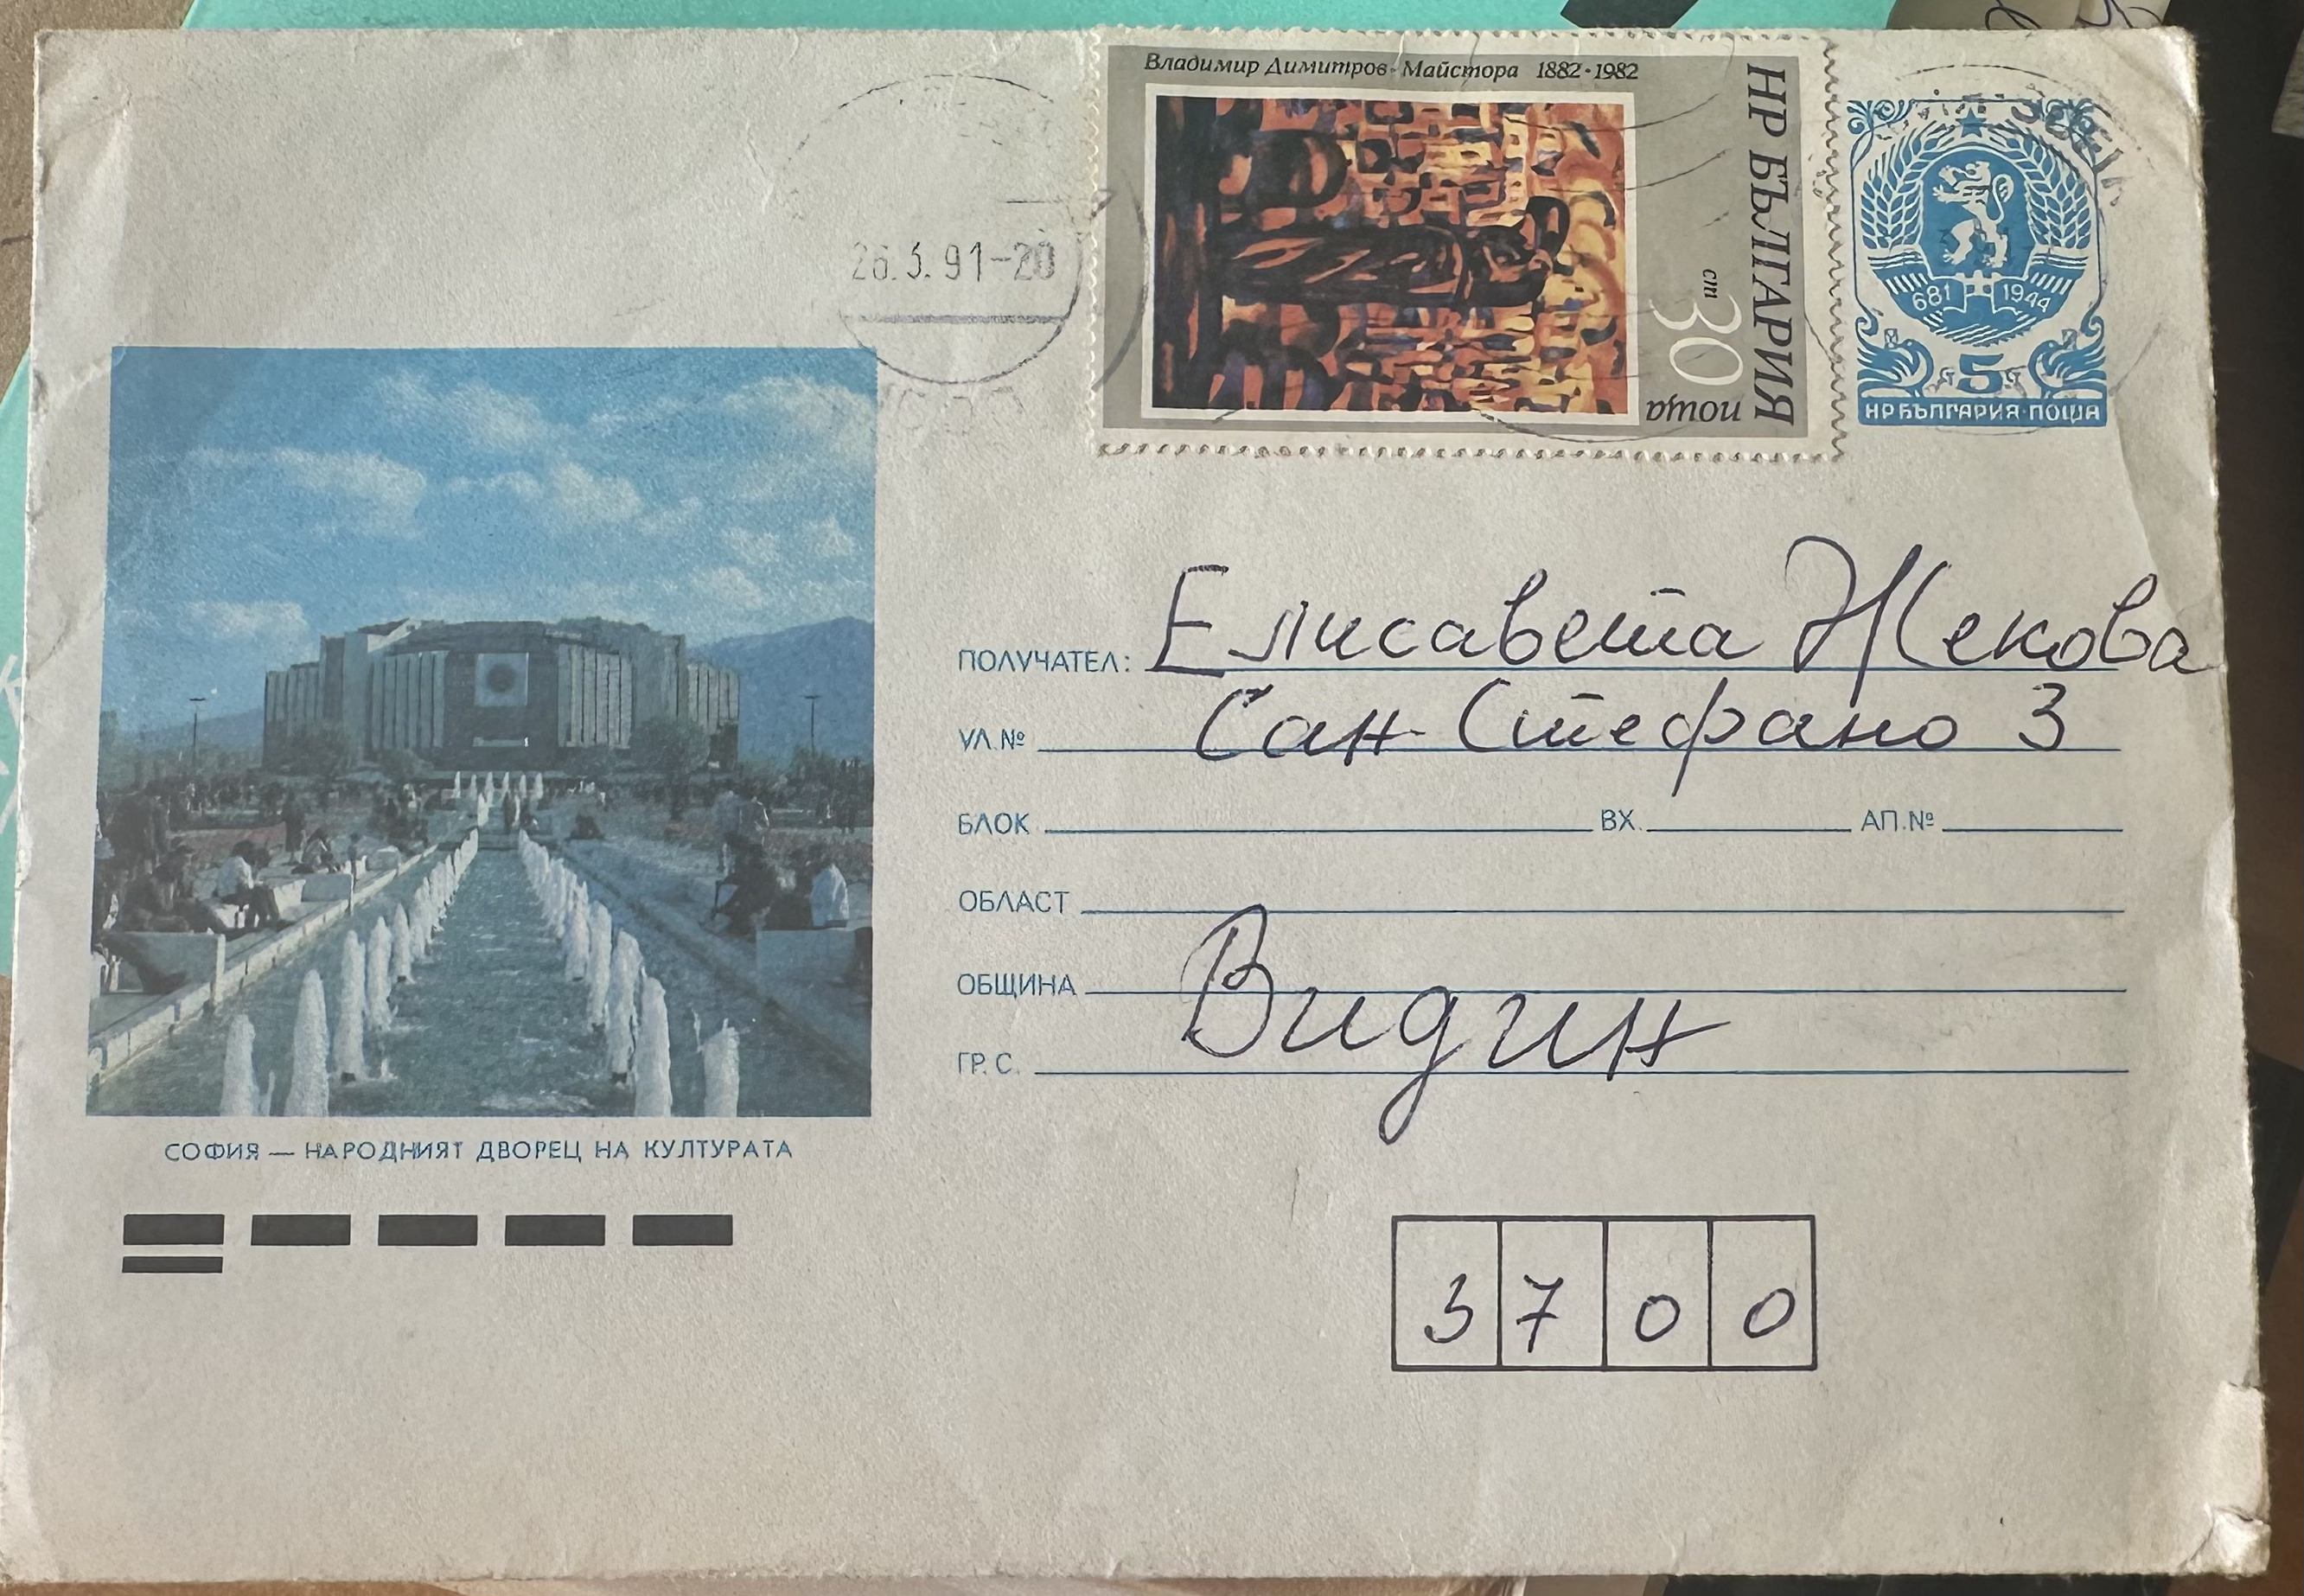 Владимир Димитров-Майстора 1882·1982
НР БЪЛГАРИЯ
ст
30
поща
681 1944
5
НР БЪЛГАРИЯ·ПОЩА
26.3.91-20
ПОЛУЧАТЕЛ: Елисавета Жекова
УЛ.№ Сан-Стефано 3
БЛОК ВХ. АП.№
ОБЛАСТ
ОБЩИНА
ГР. С. Видин
СОФИЯ — НАРОДНИЯТ ДВОРЕЦ НА КУЛТУРАТА
3700